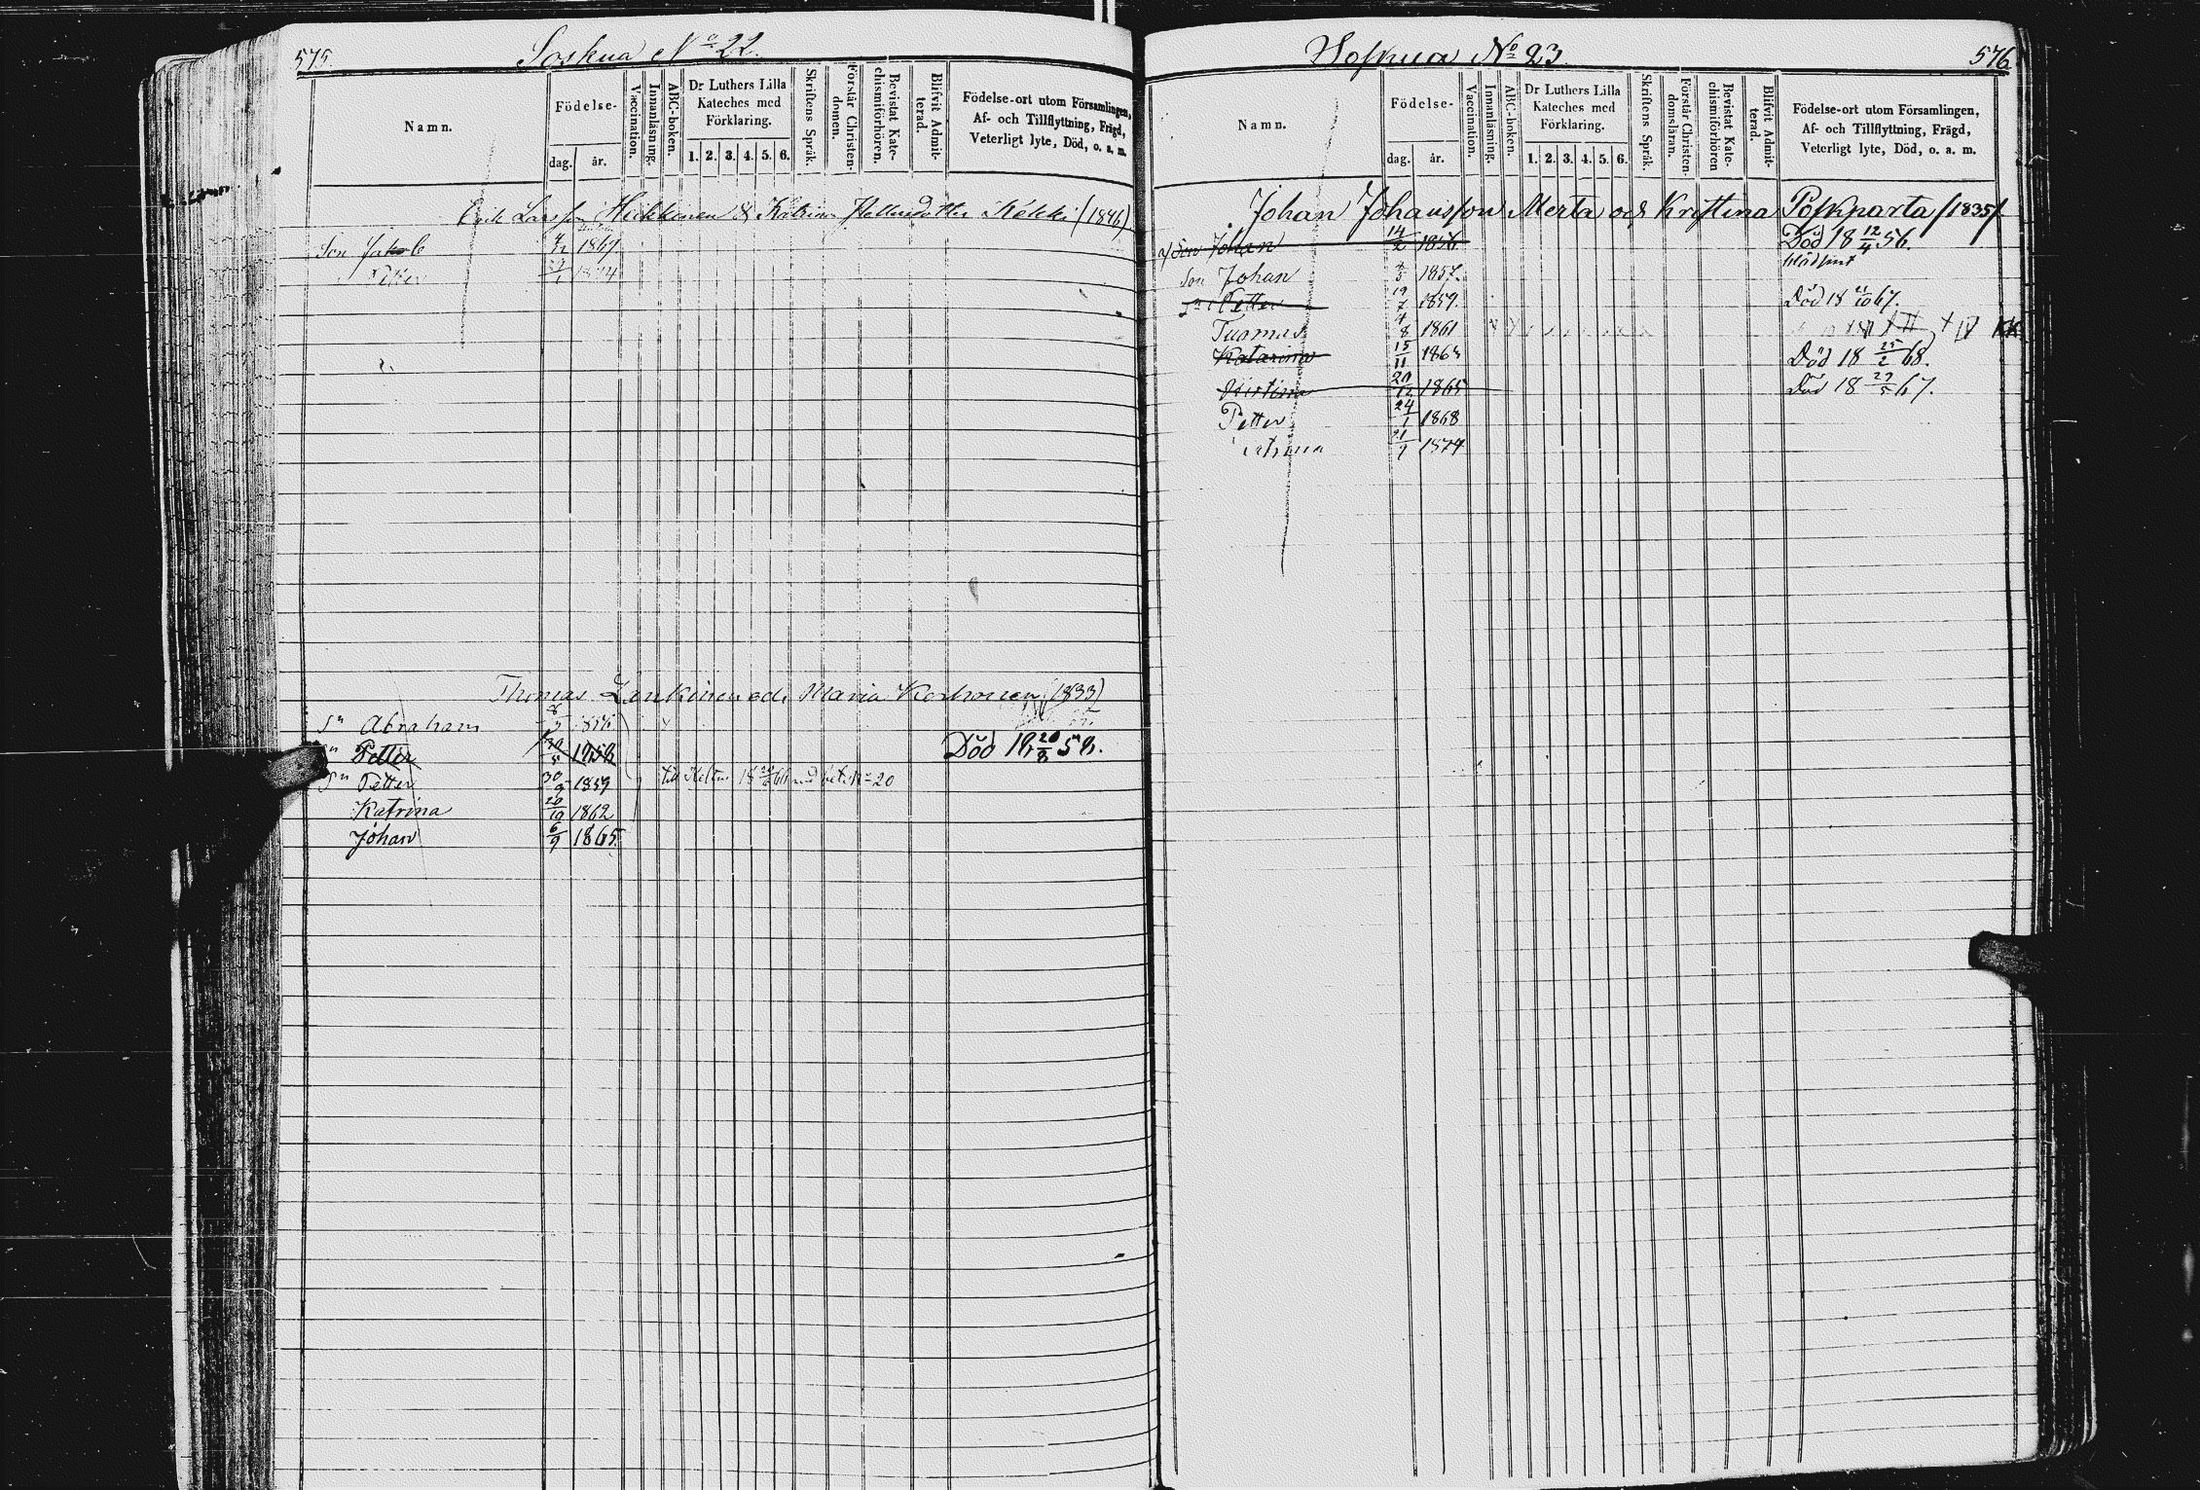 575. Soskua No 22.
Namn.
Födelse-
dag. år.
Vaccination.
Innanläsning.
ABC-boken.
Dr Luthers Lilla
Kateches med
Förklaring.
1. 2. 3. 4. 5. 6.
Skriftens Språk.
Förstår Christen-
domen.
Bevistat Kate-
chismiförhören.
Blifvit Admit-
terad.
Födelse-ort utom Församlingen,
Af- och Tillflyttning, Frägd,
Veterligt lyte, Död, o. a. m.
Larsson Hickkinen & Katrina (1846)
Son Jakob 1867
Petter
Thomas Lankinen och Maria Korhonen (1833)
Sn Abraham 8/5 1856
Petter 1858 Död 18 20/8 58.
Sn Petter 30/9 1859 till 18 66 No 20
Katrina 20/10 1862
Johan 6/9 1865.
Soskua No 23. 576
Namn.
Födelse-
dag. år.
Vaccination.
Innanläsning.
ABC-boken.
Dr Luthers Lilla
Kateches med
Förklaring.
1. 2. 3. 4. 5. 6.
Skriftens Språk.
Förstår Christen-
domsläran.
Bevistat Kate-
chismiförhören
Blifvit Admit-
terad.
Födelse-ort utom Församlingen,
Af- och Tillflyttning, Frägd,
Veterligt lyte, Död, o. a. m.
Johan Johansson Merta och Kristina Poskparta (1835)
Son Johan 14/2 1856. Död 18 12/4 56.
Son Johan 1857.
Petter 19/7 1859. Död 18 21/10 67.
Tuomas 4/8 1861
Katarina 15/11 1863 Död 18 25/2 68.
Kristina 20/12 1865 Död 18 29/5 67.
Petter 24/1 1868
Katrina 21/9 1874